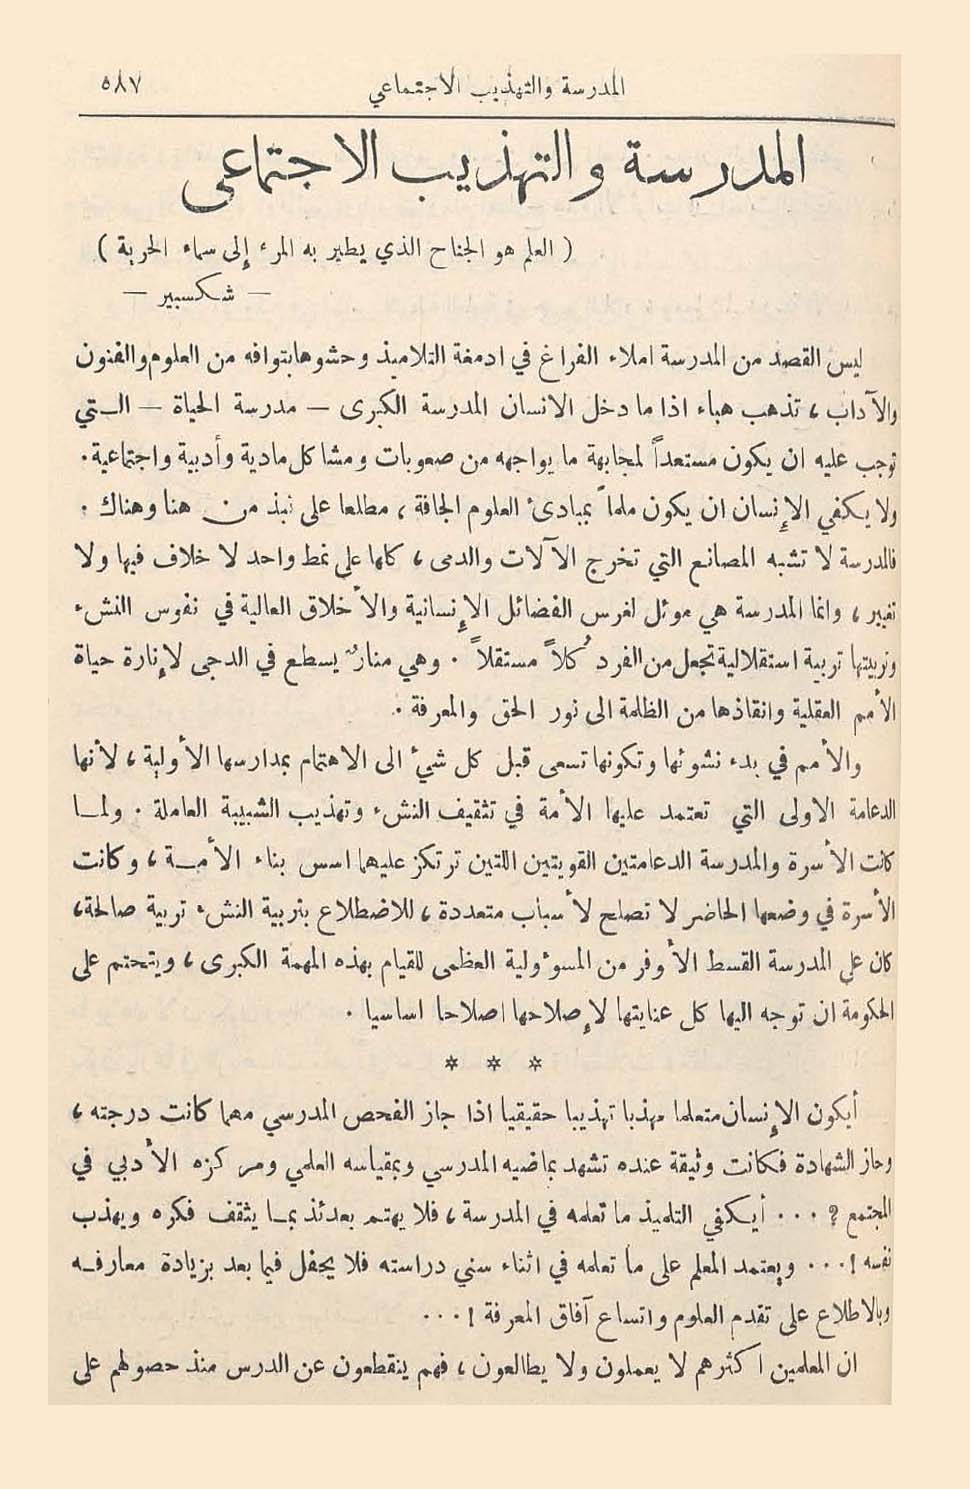 المدرسة والتهذيب الاجتماعي ٥٨٧
المدرسة والتهذيب الاجتماعي
( العلم هو الجناح الذي يطير به المرء إلى سماء الحرية )
— شكسبير —
ليس القصد من المدرسة املاء الفراغ في ادمغة التلاميذ وحشوها بتوافه من العلوم والفنون
والآداب ، تذهب هباء اذا ما دخل الانسان المدرسة الكبرى — مدرسة الحياة — الـتي
توجب عليه ان يكون مستعداً لمجابهة ما يواجهه من صعوبات ومشاكل مادية وأدبية واجتماعية .
ولا يكفي الإنسان ان يكون ملماً بمبادئ العلوم الجافة ، مطلعا على نبذ من هنا وهناك .
فالمدرسة لا تشبه المصانع التي تخرج الآلات والدمى ، كلها على نمط واحد لا خلاف فيها ولا
تغيير ، وانما المدرسة هي موئل لغرس الفضائل الإنسانية والأخلاق العالية في نفوس النشء
وتربيتها تربية استقلالية تجعل من الفرد كُلاً مستقلاً . وهي منارٌ يسطع في الدجى لإنارة حياة
الأمم العقلية وانقاذها من الظلمة الى نور الحق والمعرفة .
والأمم في بدء نشوئها وتكونها تسعى قبل كل شيءٍ الى الاهتمام بمدارسها الأولية ، لأنها
الدعامة الاولى التي تعتمد عليها الأمة في تثقيف النشء وتهذيب الشبيبة العاملة . ولمـا
كانت الأسرة والمدرسة الدعامتين القويتين اللتين ترتكز عليهما اسس بناء الأمـة ، وكانت
الأسرة في وضعها الحاضر لا تصلح لأسباب متعددة ، للاضطلاع بتربية النشء تربية صالحة ،
كان على المدرسة القسط الأوفر من المسؤولية العظمى للقيام بهذه المهمة الكبرى ، ويتحتم على
الحكومة ان توجه اليها كل عنايتها لإصلاحها اصلاحا اساسيا .
* * *
أيكون الإنسان متعلما مهذبا تهذيبا حقيقيا اذا جاز الفحص المدرسي مهما كانت درجته ،
وحاز الشهادة فكانت وثيقة عنده تشهد بماضيه المدرسي وبمقياسه العلمي ومركزه الأدبي في
المجتمع ؟ ... أيـكفي التلميذ ما تعلمه في المدرسة ، فلا يهتم بعدئذ بمـا يثقف فكره ويهذب
نفسه !... ويعتمد المعلم على ما تعلمه في اثناء سني دراسته فلا يحفل فيما بعد بزيادة معارفـه
وبالاطلاع على تقدم العلوم واتساع آفاق المعرفة !...
ان المعلمين اكثرهم لا يعملون ولا يطالعون ، فهم ينقطعون عن الدرس منذ حصولهم على